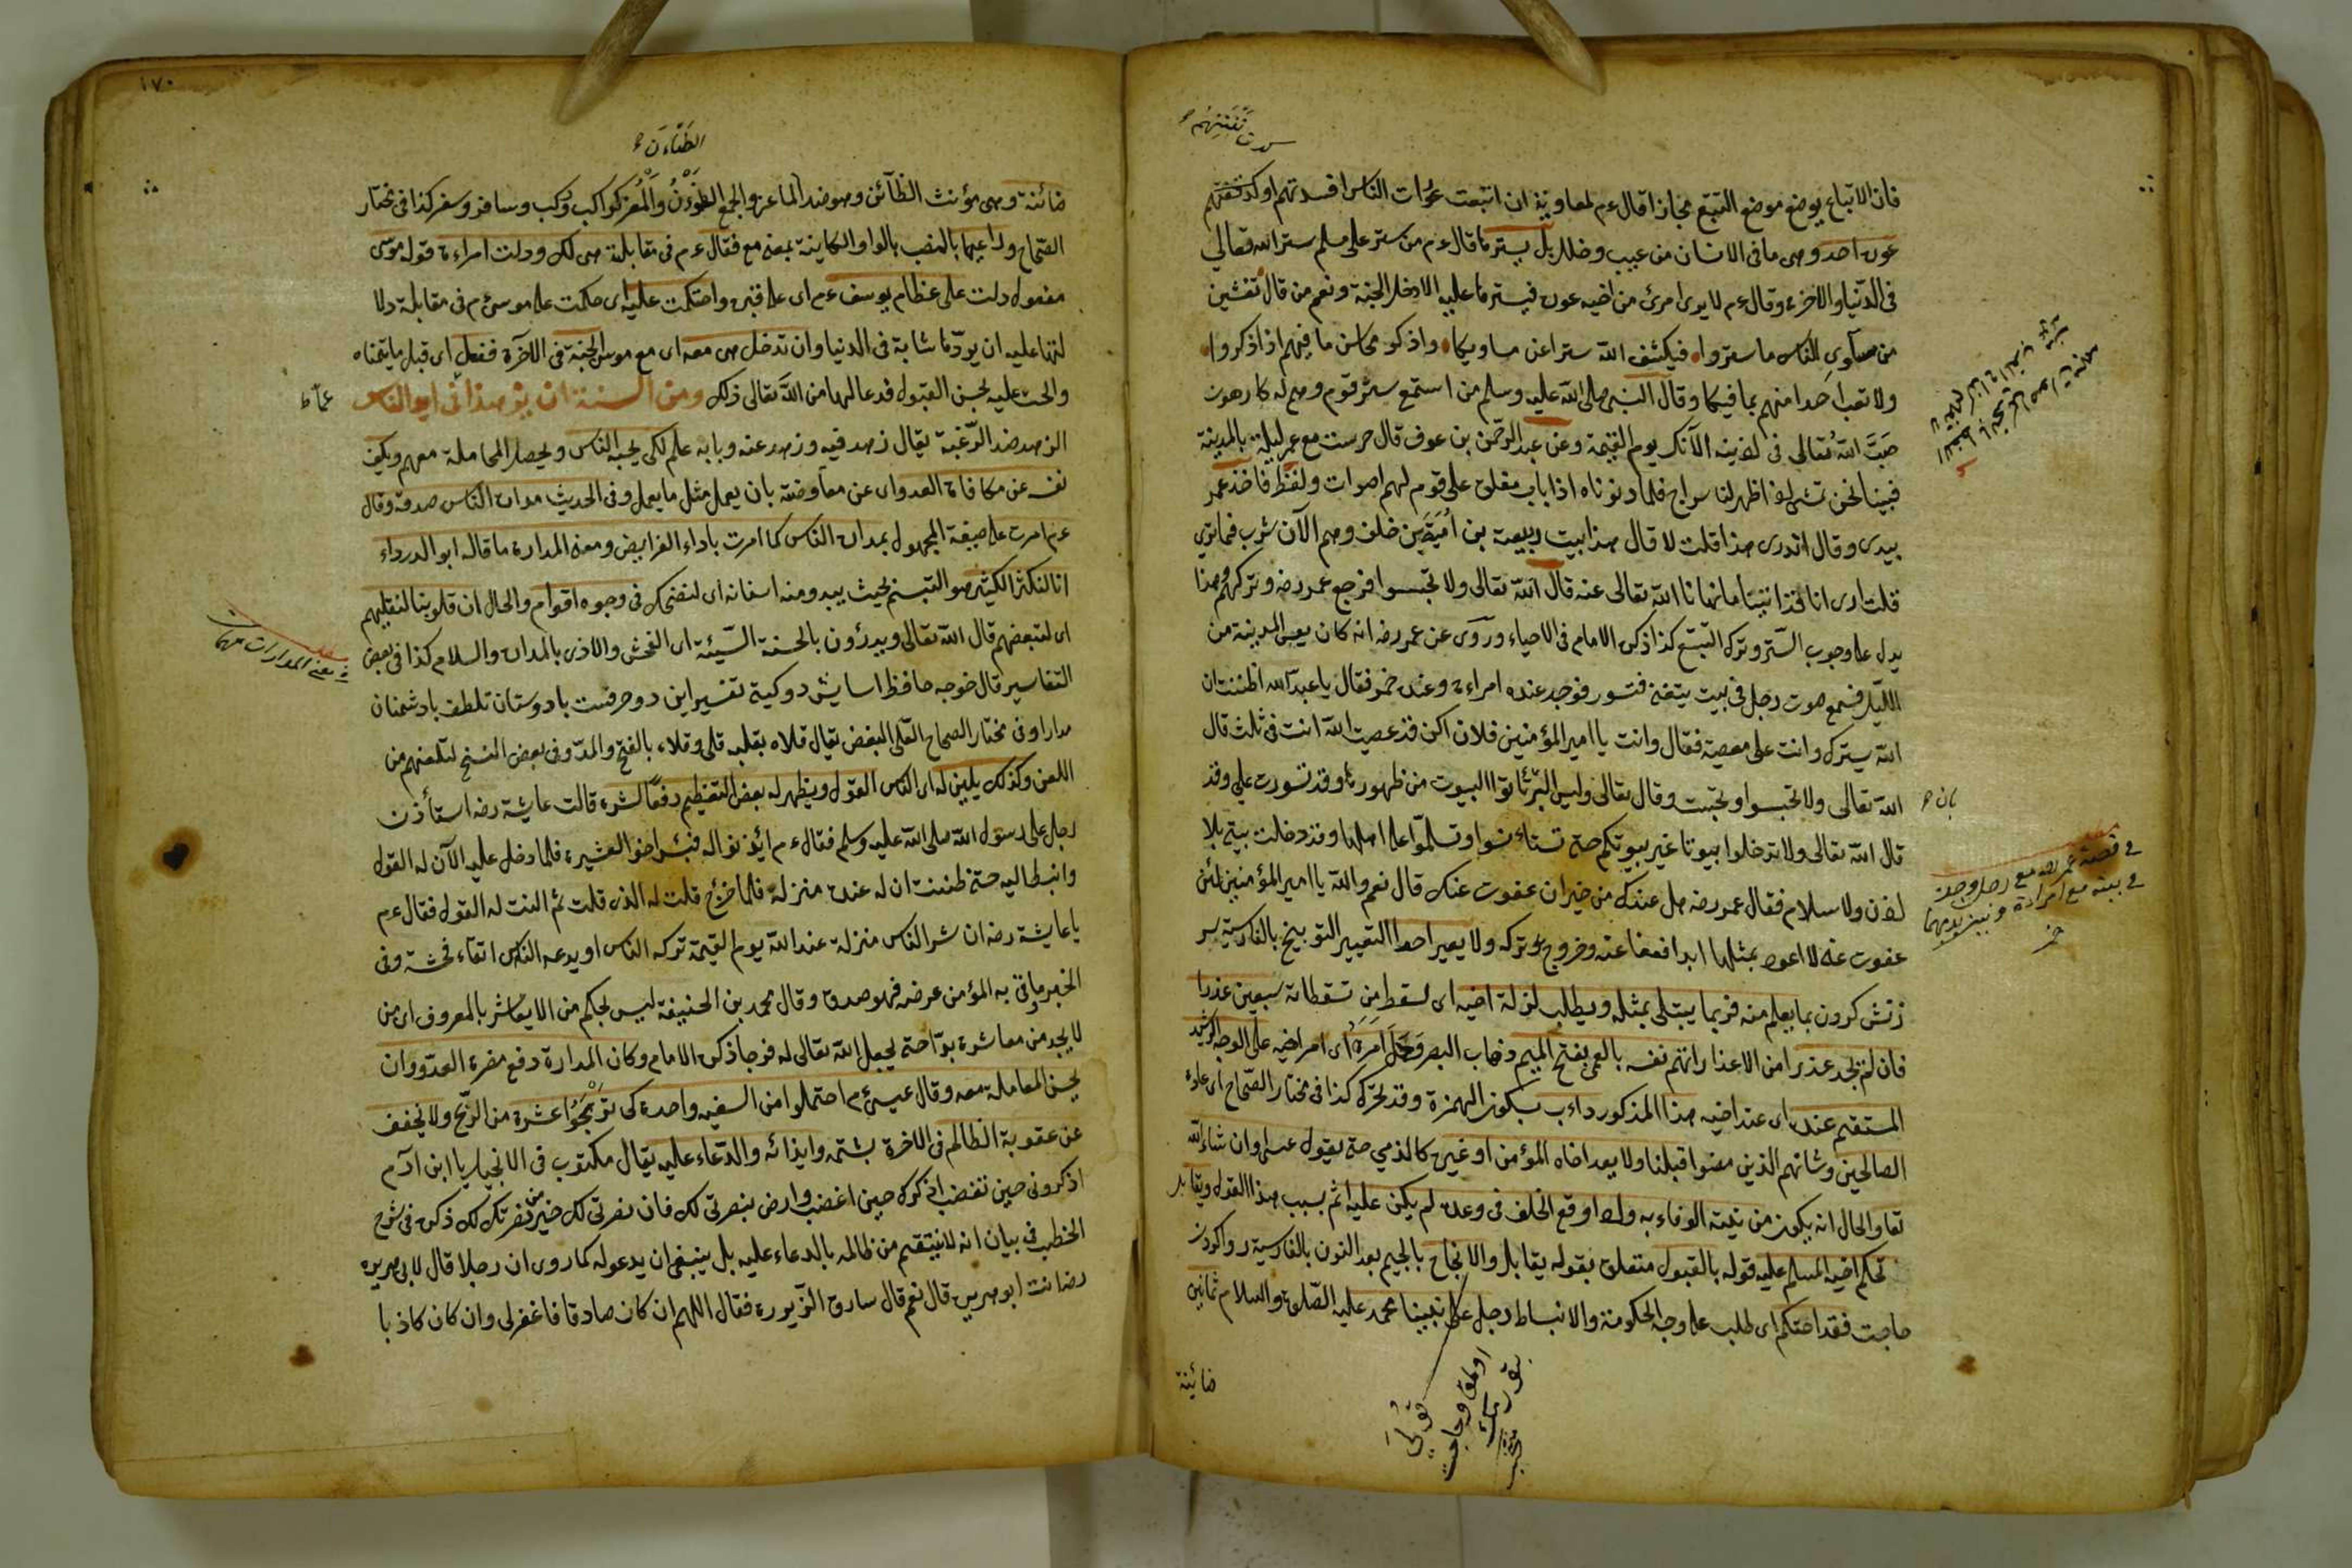 فان الاتباع يوضع موضع التتبع مجازا قال ءم لمعاوية ان اتبعت عورات الناس افسدتهم او كدت تفتنهم
عورة احد وهى ما فى الانسان من عيب وخلل بل يستر ما قال ءم من ستر على مسلم ستر الله تعالى
فى الدنيا والاخرة وقال ءم لا يرى امرئ من اخيه عورة فيسترها عليه الا دخل الجنة ونعم من قال تفتشن
من مساوى الناس ما ستروا فيكشف الله سترا عن مساويكا واذكر محاسن ما فيهم اذا ذكروا
ولا تعب احدا منهم بما فيكا وقال النبى صلى الله عليه وسلم من استمع سر قوم وهم له كارهون
صب الله تعالى فى اذنيه الآنك يوم القيمة وعن عبد الرحمن بن عوف قال حرست مع عمر ليلة بالمدينة
فبينا نحن نمشى اذ ظهر لنا سراج فلما دنوناه اذا باب مغلق على قوم لهم اصوات ولغط فاخذ عمر
بيدى وقال اتدرى هذا قلت لا قال هذا بيت ربيعة بن امية بن خلف وهم الآن شرب فما ترى
قلت ارى انا قد اتينا ما نهانا الله تعالى عنه قال الله تعالى ولا تجسسوا فرجع عمر رضه وتركهم وهذا
يدل على وجوب الستر وترك التتبع كذا ذكره الامام فى الاحياء وروى عن عمر رضه انه كان يعس المدينة من
الليل فسمع صوت رجل فى بيت يتغنى فتسور فوجد عنده امراءة وعنده خمر فقال يا عبد الله اظننت ان
الله يسترك وانت على معصية فقال وانت يا امير المؤمنين فلان اكن قد عصيت الله انت فى ثلث قال
الله تعالى ولا تجسسوا وتجسست وقال تعالى وليس البر بان تأتوا البيوت من ظهورها وقد تسورت على وقد
قال الله تعالى ولا تدخلوا بيوتا غير بيوتكم حتى تستاءنسوا وتسلموا على اهلها وقد دخلت بيتى بلا
اذن ولا سلام فقال عمر رضه هل عندك من خير ان عفوت عنك قال نعم والله يا امير المؤمنين لئن
عفوت عنى لا اعود بمثلها ابدا فعفا عنه وخرج وتركه ولا يعير احدا التعيير التوبيخ بالفارسية سر
زنش كردن بما يعلم منه فربما يبتلى بمثله ويطلب لزلة اخيه اى لسقط من تسقطاته سبعين عذرا
فان لم يجد عذرا من الاعذار اتهم نفسه بالعمى بفتح الميم ذهاب البصر وحمل امره اى امر اخيه على الوجه الرشد
المستقيم عنده اى عند اخيه هذا المذكور داءب بسكون الهمزة وقد يحرك كذا فى مختار الصحاح اى عادة
الصالحين وشانهم الذين مضوا قبلنا ولا يعد اخاه المؤمن او غيره كالذمى حتى يقول عسى وان شاء الله
تعا والحال انه يكون من نيته الوفاء به ولو اوقع الخلف فى وعده لم يكن عليه اثم بسبب هذا القول ويقابل
تحكم اخيه المسلم عليه قوله بالقبول متعلق بقوله يقابل والانجاح بالجيم بعد النون بالفارسية روا كردن
حاجت فقد احتكم اى طلب على وجه الحكومة والانبساط رجل على نبينا محمد عليه الصلوة والسلام ثمانين
ضائنة
بان
فى قصة عمر رضه مع رجل وجد
فى بيته مع امراءة
خمر
١٧٠
ضائنة وهى مؤنث الضآئن وهو ضد الماعز والجمع الضؤن والمعز كراكب وركب وسافر وسفر كذا فى مختار
الصحاح وراعيها بالنصب بالواو الكائنة بمعنى مع فقال ءم فى مقابلته هى لك ودلت امراءة قوله موسى
مفعول دلت على عظام يوسف ءم اى على قبره واحتكمت عليه اى حكمت على موسى ءم فى مقابلة دلا
لتها عليه ان يردها شابة فى الدنيا وان تدخل هى معه اى مع موسى الجنة فى الآخرة ففعل اى قبل ما يتمناه
والحت عليه بحسن القبول فدعا لهما من الله تعالى ذلك ومن السنة ان يزهد فى ايدى الناس
الزهد ضد الرغبة يقال زهد فيه وزهد عنه وبابه علم لكى يحبه الناس ويحصل المجاملة معهم ويكف
نفسه عن مكافاة العدو اى عن معاوضته بان يعمل مثل ما يعمل وفى الحديث مداراة الناس صدقة وقال
ءم امرت على صيغة المجهول بمداراة الناس كما امرت باداء الفرايض ومعنى المداراة ما قاله ابو الدرداء
انا لنكشر الكشر هو التبسم بحيث يبدو منه اسنانه اى لنضحك فى وجوه اقوام والحال ان قلوبنا لتقليهم
اى لتبغضهم قال الله تعالى ويدرؤن بالحسنة السيئة اى الفحش والاذى بالمداراة والسلام كذا فى بعض
التفاسير قال خوجه حافظ اسايش دو كيتى تفسير اين دو حرفست با دوستان تلطف با دشمنان
مدارا وفى مختار الصحاح القلى البغض يقال قلاه يقليه قلى وقلاء بالفتح والمد وفى بعض النسخ لتلعنهم من
اللعن وكذلك يلين له اى الناس القول ويظهر له بعض التعظيم دفعا لشره قالت عايشة رضه استأذن
رجل على رسول الله صلى الله عليه وسلم فقال ءم ائذنوا له فبئس اخو العشيرة فلما دخل عليه الآن له القول
وانبسط اليه حتى ظننت ان له عنده منزلة فلما خرج قلت له الذى قلت ثم النت له القول فقال ءم
يا عايشة رضه ان شر الناس منزلة عند الله يوم القيمة تركه الناس او يدعه الناس اتقاء فحشه وفى
الخبر ما وقى به المؤمن عرضه فهو صدقة وقال محمد بن الحنيفة ليس بحكيم من لا يعاشر بالمعروف اى من
لا يجد من معاشرته بدا حتى يجعل الله تعالى له فرجا ذكره الامام وكان المداراة دفع مضرة العدو وان
يحسن المعاملة معه وقال عيسى ءم احتملوا من السفيه واحدة كى تربحوا عشرة من الربح ولا يخفف
عن عقوبة الظالم فى الاخرة بشتمه وايذائه والدعاء عليه يقال مكتوب فى الانجيل يا ابن آدم
اذكرونى حين تغضب اذكرك حين اغضب وارض بنصرتى لك فان نصرتى لك خير من نصرتك لك ذكره فى شرح
الخطب فى بيان انه لا ينتقم من ظالمه بالدعاء عليه بل ينبغى ان يدعو له كما روى ان رجلا قال لابى هريرة
رضه انت ابو هريرة قال نعم قال سارق الزبيرة فقال اللهم ان كان صادقا فاغفر لى وان كان كاذبا
معنى المدارات